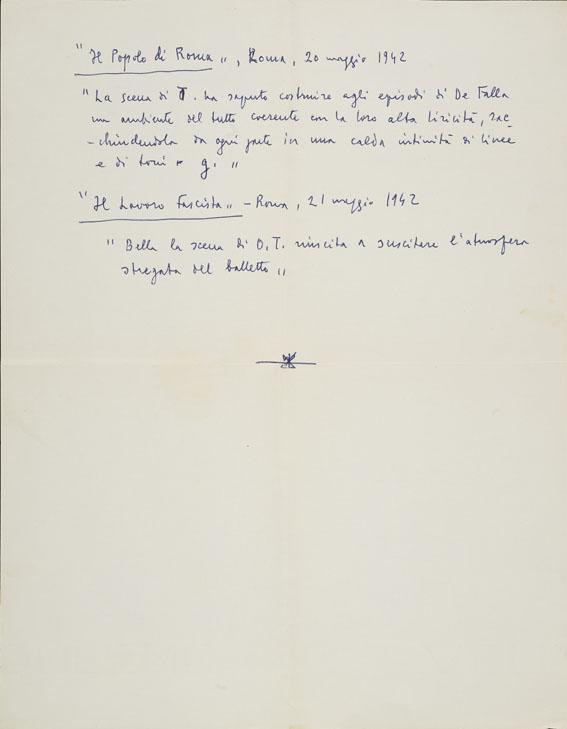 "Il Popolo di Roma", Roma, 20 maggio 1942
"La scena di T. ha saputo costruire agli episodi di De Falla
un ambiente del tutto coerente con la loro alta liricità, rac
-chiudendola da ogni parte in una calda intimità di linee
e di toni g. "
"Il Lavoro Fascista" - Roma, 21 maggio 1942
"Bella la scena di O.T. riuscita a suscitare l'atmosfera
stregata del balletto"